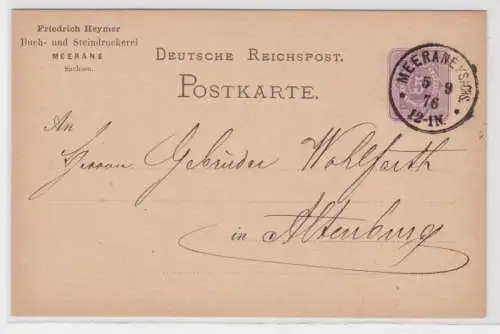 Friedrich Heymer
Buch- und Steindruckerei
MEERANE
Sachsen.
DEUTSCHE REICHSPOST.
POSTKARTE.
MEERANE i/SACHS.
5 9
76
12-1N.
An
Herren Gebrüder Wohlfarth
in Altenburg